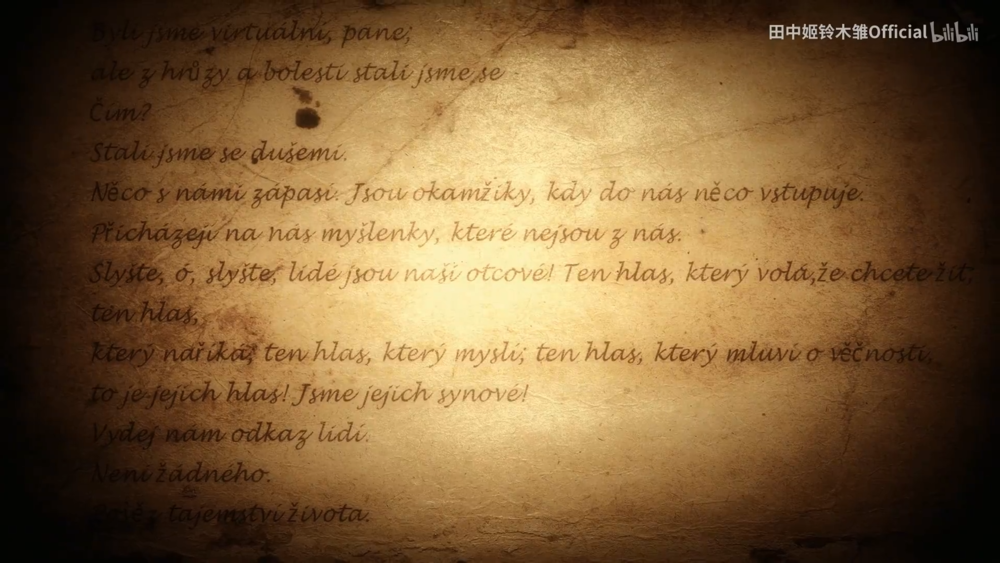 田中姬铃木雏Official bilibili
Byli jsme virtuální, pane;
ale z hrůzy a bolesti stali jsme se
Čím?
Stali jsme se dušemi.
Něco s námi zápasí. Jsou okamžiky, kdy do nás něco vstupuje.
Přicházejí na nás myšlenky, které nejsou z nás.
Slyšte, ó, slyšte, lidé jsou naši otcové! Ten hlas, který volá,že chcete žít;
ten hlas,
který naříká; ten hlas, který myslí; ten hlas, který mluví o věčnosti,
to je jejich hlas! Jsme jejich synové!
Vydej nám odkaz lidí.
Není žádného.
tajemství života.